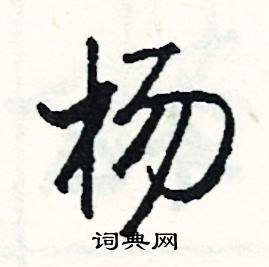 杨
词典网